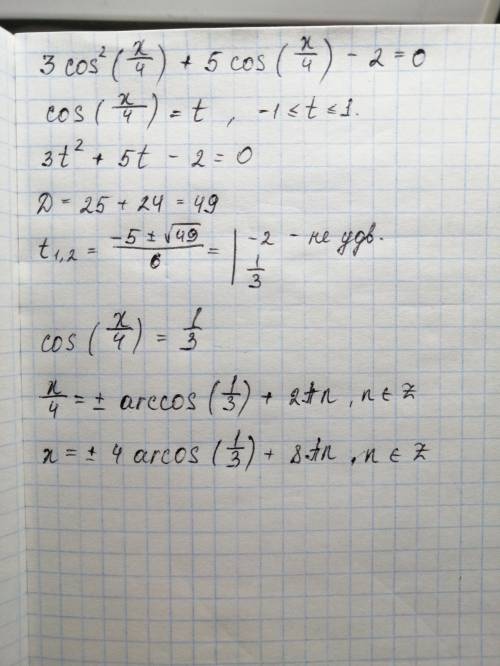 3 cos² (x/4) + 5 cos (x/4) - 2 = 0
cos (x/4) = t , -1 ≤ t ≤ 1.
3t² + 5t - 2 = 0
D = 25 + 24 = 49
t₁,₂ = (-5 ± √49)/6 = | -2 - не удв.
1/3
cos (x/4) = 1/3
x/4 = ± arccos (1/3) + 2πn , n ∈ Z
x = ± 4 arcos (1/3) + 8πn , n ∈ Z